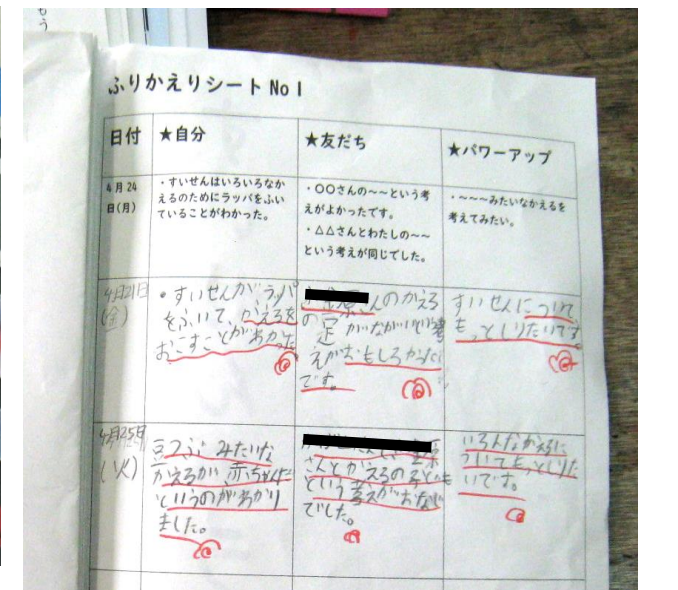 もう
ふりかえりシート No 1
日付
★自分
★友だち
★パワーアップ
4月24
日(月)
・すいせんはいろいろなか
えるのためにラッパをふい
ていることがわかった。
・○○さんの～～という考
えがよかったです。
・△△さんとわたしの～～
という考えが同じでした。
・～～～みたいなかえるを
考えてみたい。
4月21日
(金)
・すいせんがラッパ
をふいて、かえるを
おこすことがわかった
原さんのかえる
の足がながいという考
えがおもしろかった
です。
すいせんについて
もっとしりたいです
4月25日
(火)
豆つぶみたいな
かえるが赤ちゃんだ
というのがわかり
ました。
原
さんとかえるの子ども
という考えがおなじ
でした。
いろんなかえるに
ついてもっとしりた
いです。